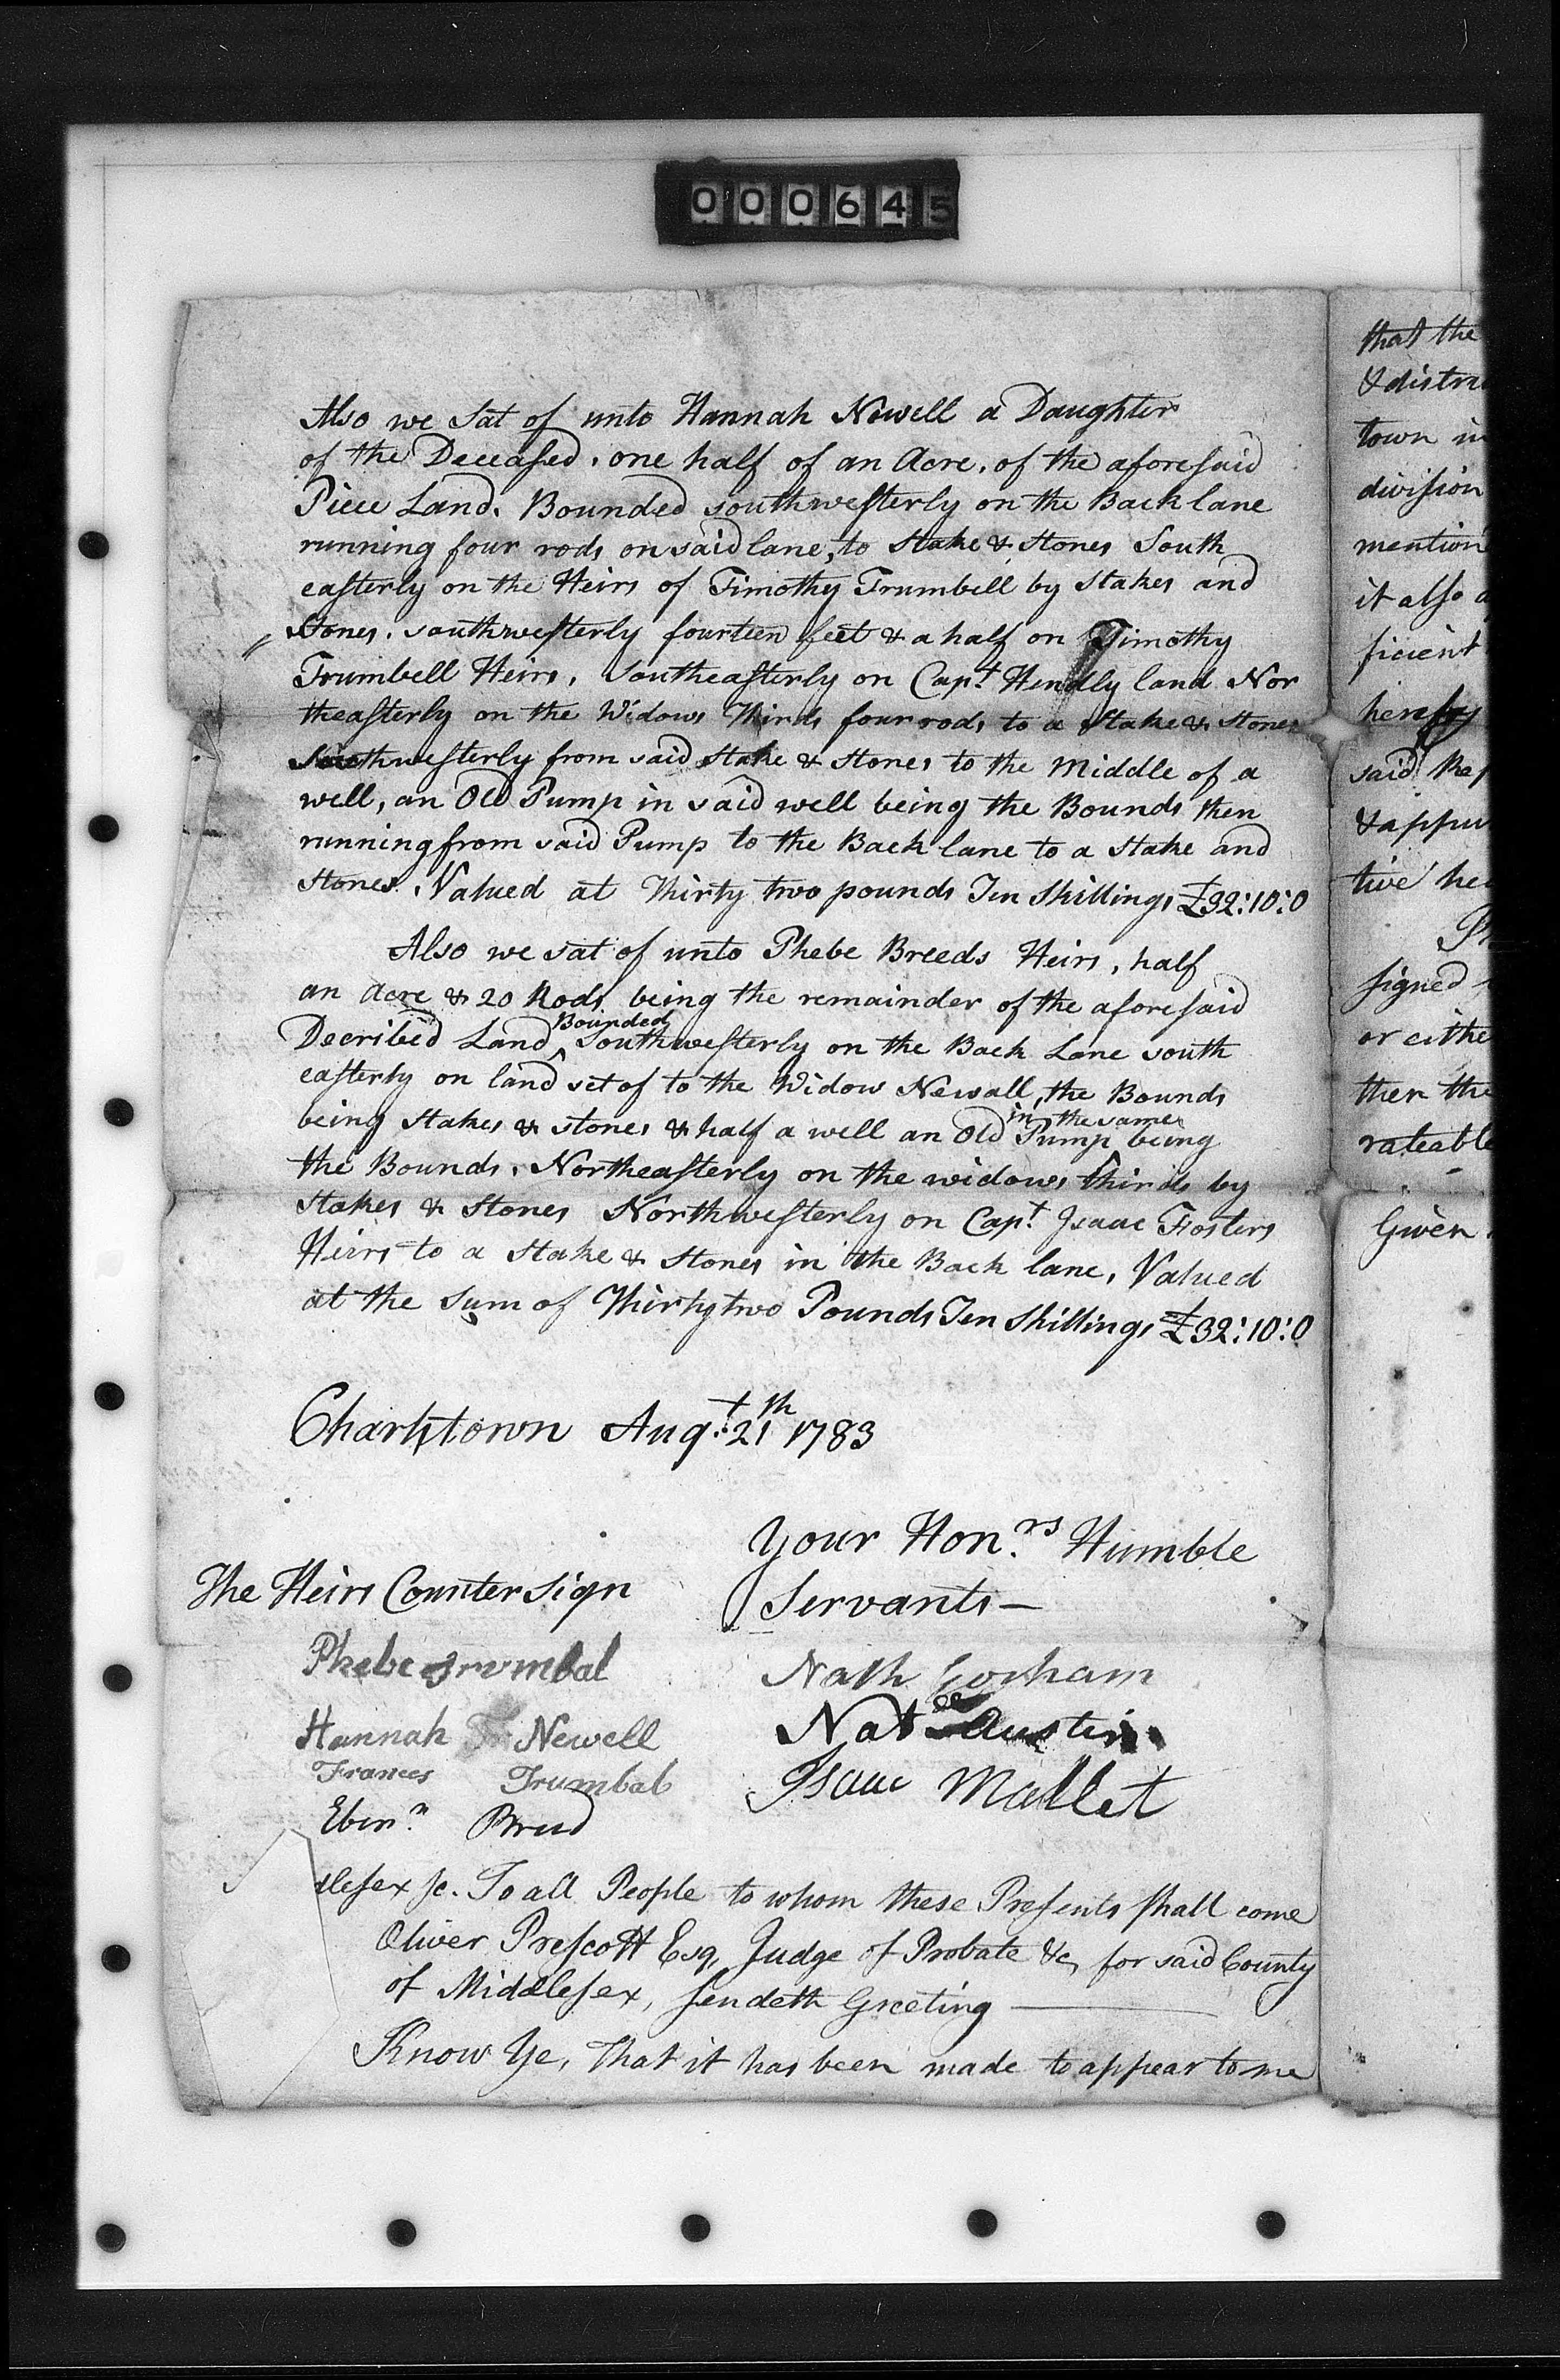 000645
Also we Sat of unto Hannah Newell a Daughter
of the Deceaſed, one half of an Acre, of the aforeſaid
Piece Land. Bounded southweſterly on the Back lane
running four rods on said lane, to Stake & Stones South
eaſterly on the Heirs of Timothy Trumbell by Stakes and
Stones, southweſterly fourteen feet & a half on Timothy
Trumbell Heirs, Southeaſterly on Capt. Hendly land Nor
theaſterly on the Widows Thirds four rods to a Stake & Stones
Southweſterly from said Stake & Stones to the Middle of a
well, an Old Pump in said well being the Bounds then
running from said Pump to the Back lane to a Stake and
Stones. Valued at Thirty two pounds Ten Shillings £32:10:0
Also we sat of unto Phebe Breeds Heirs, half
an Acre & 20 Rods being the remainder of the aforeſaid
Decribed Land, Bounded Southweſterly on the Back Lane south
eaſterly on land set of to the Widow Newall, the Bounds
being Stakes & stones & half a well an Old Pump in the same being
the Bounds. Northeaſterly on the widows thirds by
Stakes & Stones Northweſterly on Capt. Isaac Fosters
Heirs to a Stake & Stones in the Back lane, Valued
at the Sum of Thirty two Pounds Ten Shillings £32:10:0
Charlstown Augt. 21th 1783
Your Hon.rs Humble
Servants—
The Heirs Counter Sign
Phebe Trumbal
Hannah Newell
Frances Trumbal
Eben.r Breed
Nath Gorham
Nat Austin
Isaac Mallet
dleſex ſc. To all People to whom these Preſents ſhall come
Oliver Preſcott Esq, Judge of Probate &c, for said County
of Middleſex, ſendeth Greeting
Know Ye, That it has been made to appear to me
that the
& distri
town in
diviſion
mention
it alſo a
ficient
hereby
said
& appur
tive hei
signed
or eithe
ther the
rateable
Given